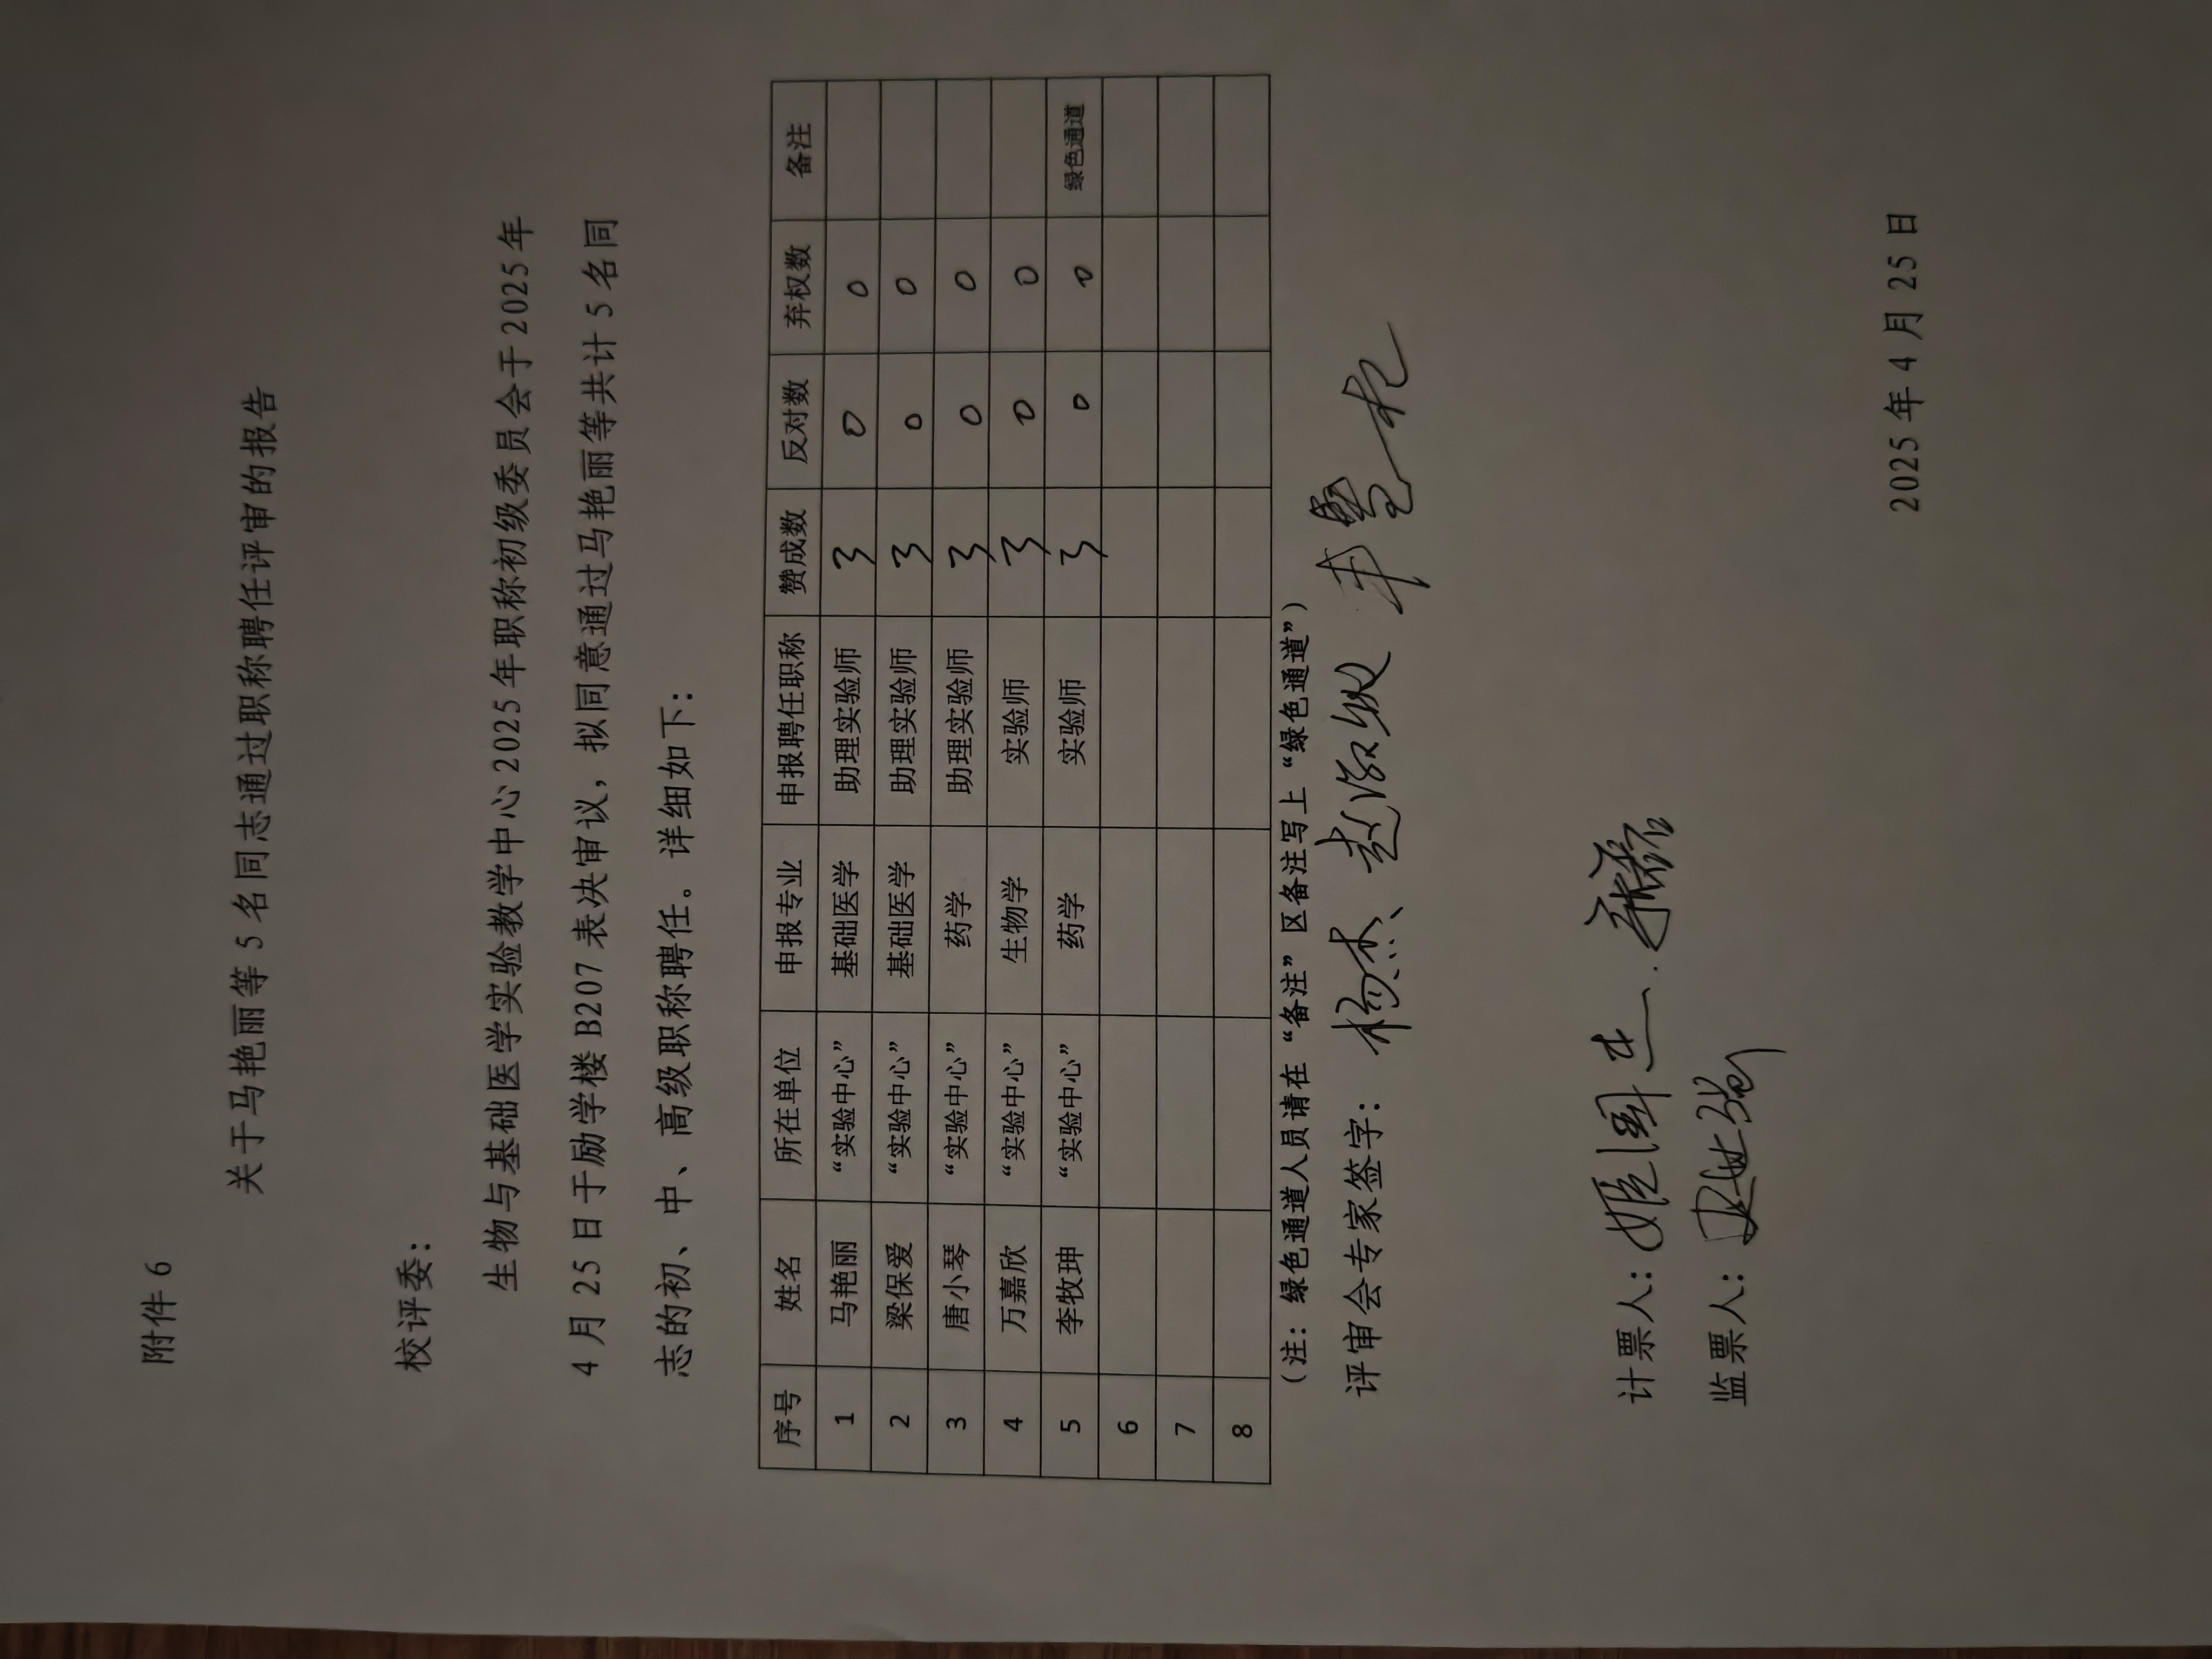 附件 6
关于马艳丽等 5 名同志通过职称聘任评审的报告
校评委：
生物与基础医学实验教学中心 2025 年职称初级委员会于 2025 年
4 月 25 日于励学楼 B207 表决审议，拟同意通过马艳丽等共计 5 名同
志的初、中、高级职称聘任。详细如下：
序号 姓名 所在单位 申报专业 申报聘任职称 赞成数 反对数 弃权数 备注
1 马艳丽 “实验中心” 基础医学 助理实验师 3 0 0
2 梁保爱 “实验中心” 基础医学 助理实验师 3 0 0
3 唐小琴 “实验中心” 药学 助理实验师 3 0 0
4 万嘉欣 “实验中心” 生物学 实验师 3 0 0
5 李牧珅 “实验中心” 药学 实验师 3 0 0 绿色通道
6
7
8
（注：绿色通道人员请在 “备注” 区备注写上 “绿色通道”）
评审会专家签字： 杨杰、赵淑敏
计票人：
监票人：
2025 年 4 月 25 日